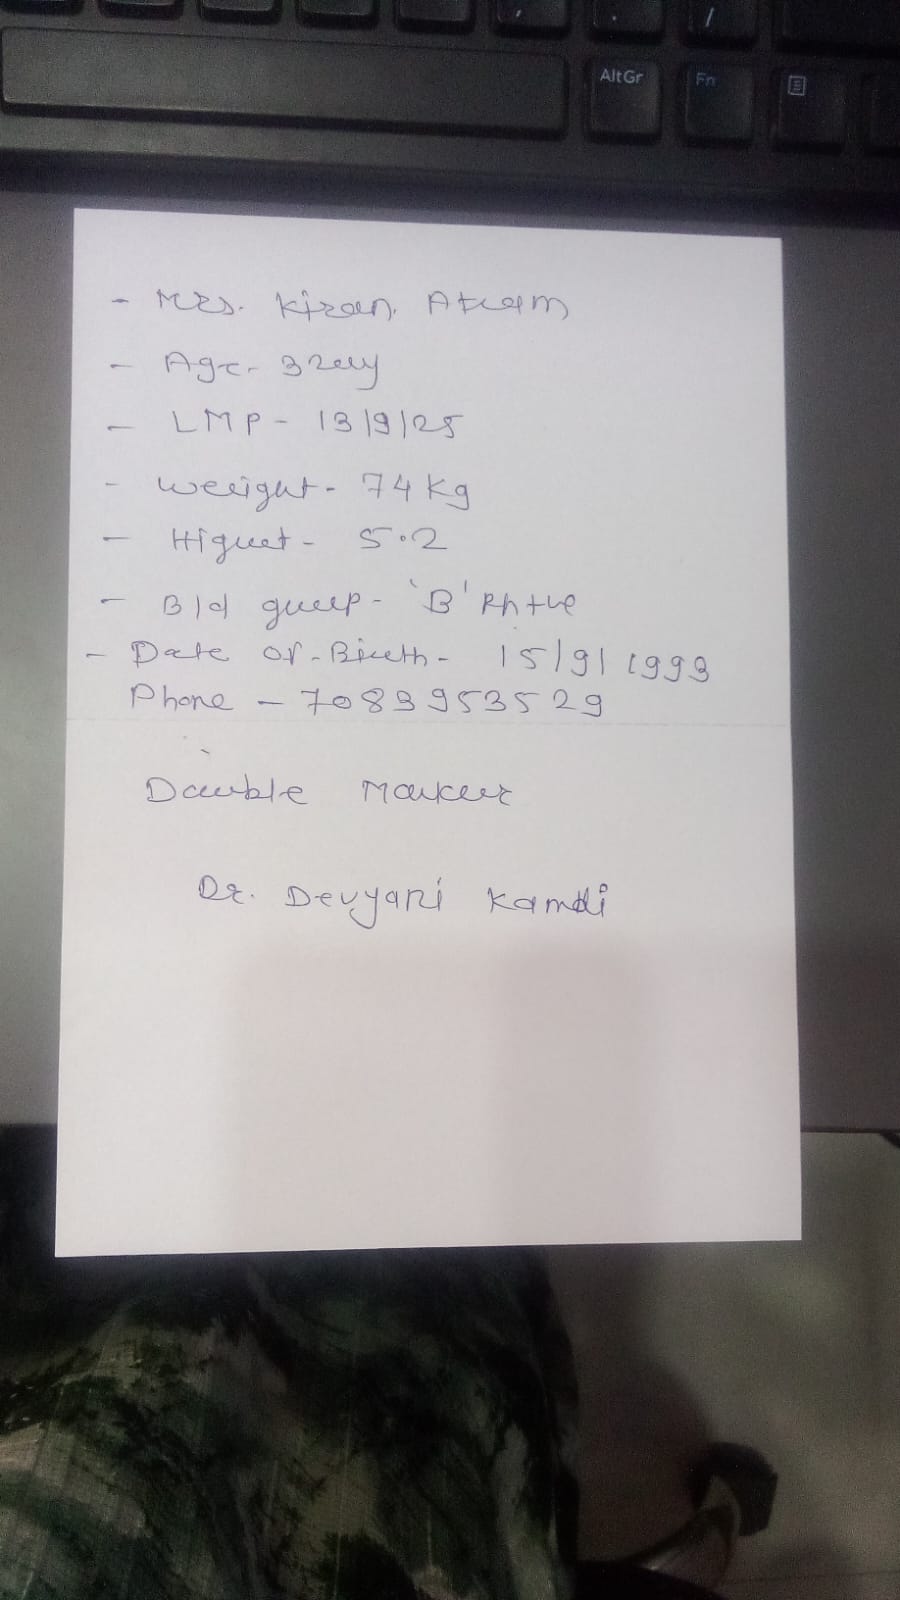 AltGr Fn
- Mrs. Kiran. Atram
- Age- 32 y
- LMP - 13/9/25
- weight - 74 kg
- Higuet - 5.2
- Bld group - 'B' Rh +ve
- Date of - Birth - 15/9/1993
Phone - 7083953529
Double Marker
Dr. Devyani Kamdi